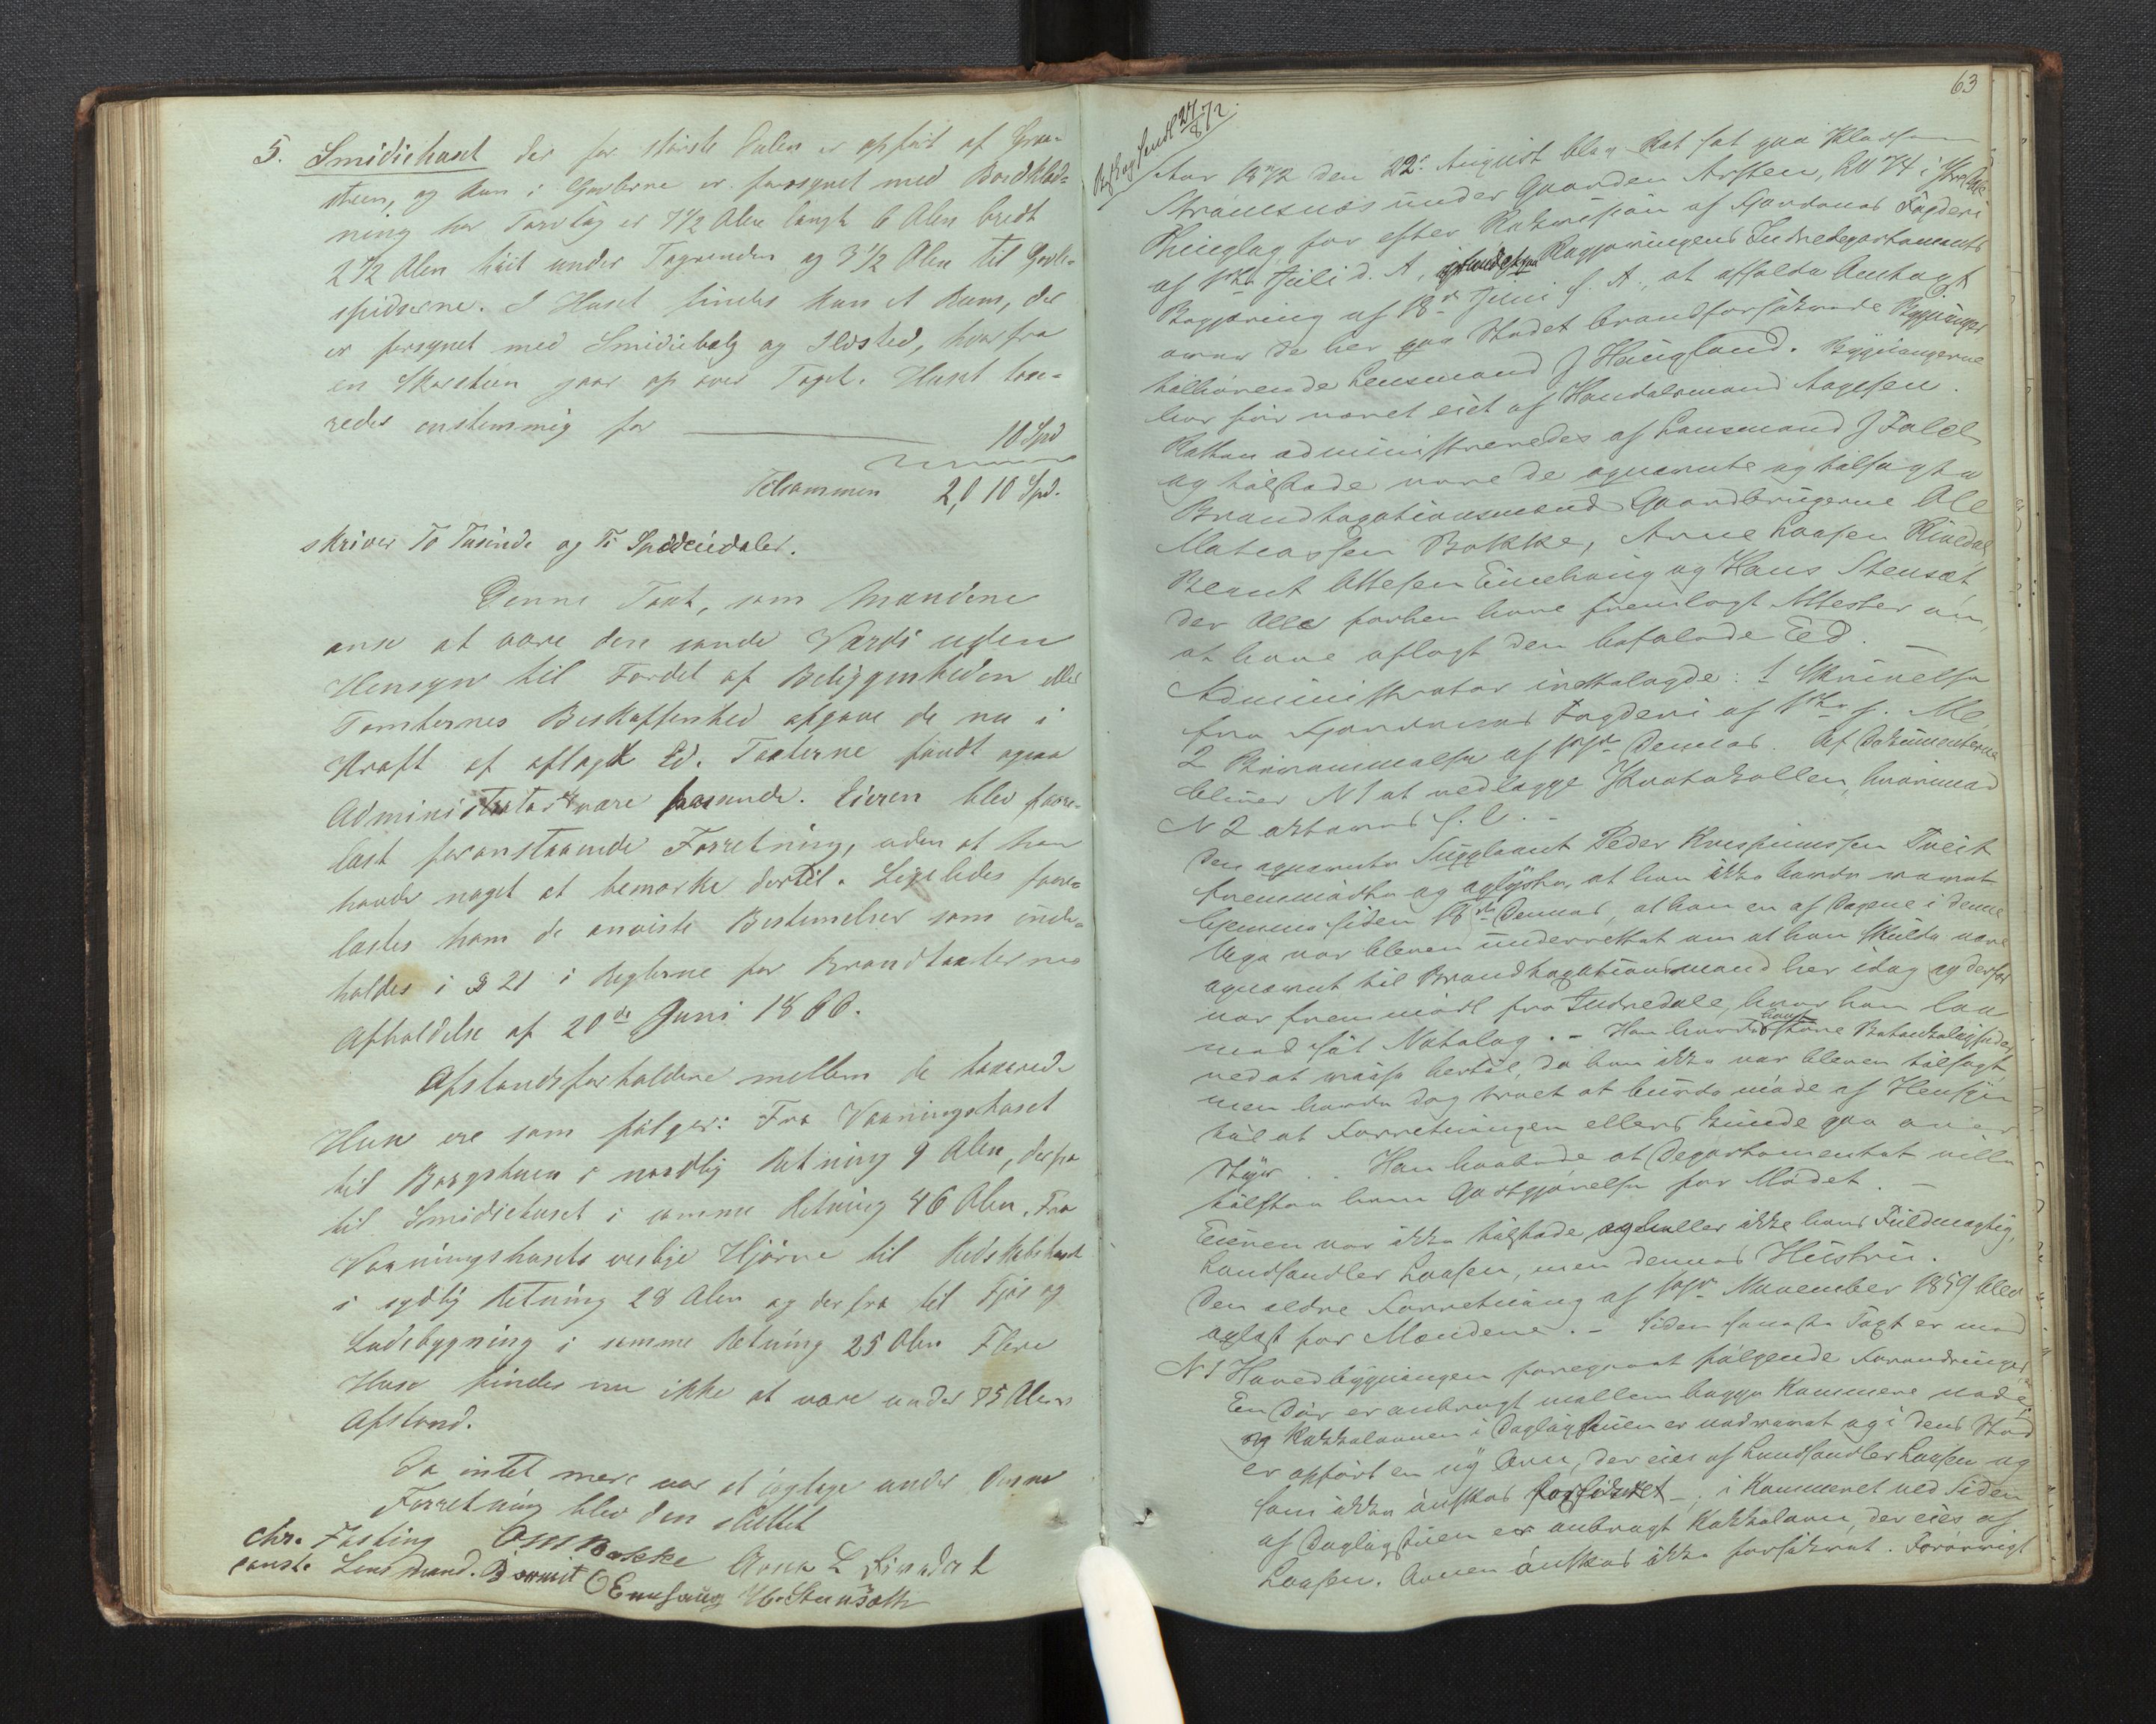 5. Smidiehuset der for störste Delen er opfört af Graa-
steen, og kun i Gavlerne er forsynet med Bordklæd-
ning har Torvtag er 7 1/2 Alen langt 6 Alen bredt
2 1/2 Alen höit under Tagrenden og 3 1/2 Alen til Gavle-
spidserne. I Huset findes kun et Rum, der
er forsynet med Smidiebælg og Ildsted, hvorfra
en Skorsteen gaar op over Taget. Huset taxe-
redes enstemmig for 10 Spd
Tilsammen 2,010 Spd.
skriver To Tusinde og Ti Speciedaler.
Denne Taxt, som Mændene
anse at være den sande Værdi uden
Hensyn til Fordel af Beliggenheden eller
Tomternes Beskaffenhed afgave de nu i
Kraft af aflagt Ed. Taxterne fandt ogsaa
Administrator være passende. Eieren blev fore-
læst foranstaaende Forretning, uden at han
havde noget at bemærke dertil. Ligeledes fore-
læstes ham de anviste Bestemelser som inde-
holdes i § 21 i Reglerne for Brandtaxternes
Afholdelse af 20de Juni 1860.
Afstandsforholdene mellem de taxerede
Huse ere som fölger: Fra Vaaningshuset
til Borgstuen i nordlig Retning 9 Alen, derfra
til Smidiehuset i samme Retning 46 Alen. Fra
Vaaningshusets vestlige Hjörne til Redskabshuset
i sydlig Retning 28 Alen og derfra til Fjös og
Ladebygning i samme Retning 25 Alen Flere
Huse findes nu ikke at være under 75 Alens
Afstand.
Da intet mere var at iagtage under denne
Forretning blev den sluttet
Chr. Fasting OMBakke Arne L Rivedal
const. Lensmand. Berent OEenhaug H. Stensæth
63
27/8 72.
Aar 1872 den 22de August blev Ret sat paa Pladsen
Strömsnæs under Gaarden Arsten, LN 74 i
Thinglag for efter Rekvisition af Fjordenes Fogderi
af 1ste Juli d. A., grundet paa Regjeringens Indredepartements
Begjæring af 18de Juni s. A., at afholde Omtaxt
over de her paa Stedet brandforsikrede Bygninger
tilhörende Lensmand J Haugland. Bygningerne
har för været eiet af Handelsmand Aagesen.
Retten administreredes af Lensmand J Falch
og tilstede vare de opnævnte og tilsagte
Brandtaxationsmænd Gaardbrugerne Ole
Mathiassen Bakke, Arne Larsen Rivedal,
Berent Ottesen Eenehaug og Hans Stensæt
der Alle forhen have fremlagt Attester om,
at have aflagt den befalede Eed. –
Administrator irettelagde: 1 Skrivelse
fra Fjordenes Fogderi af 1ste f. M.
2 Berammelse af dennes. Af Dokumenterne
bliver N 1 at vedlægge Protokollen, hvorimod
N 2 s. l. –
Den opnævnte Suppleant Peder Tveit
fremmödte og oplyste, at han ikke havde været
hjemme siden 18de dennes, at han en af Dagene i denne
Uge var bleven underrettet om at han skulde være
opnævnt til Brandtaxationsmand her idag og derfor
var fremmödt fra Indredale, hvor han laa
med sit Notelag. – Han havde havt store
ved at reise hertil, da han ikke var bleven tilsagt,
men havde dog troet at burde möde af Hensyn
til at Forretningen ellers kunde gaa over
Styr. – Han haabede at Departementet ville
tilstaa ham Godtgjörelse for Mödet. –
Eieren var ikke tilstede, og heller ikke hans Fuldmægtig,
Landhandler Larsen, men dennes Hustru.
Den ældre Forretning af November 1859 blev
oplæst for Mændene. – Siden seneste Taxt er med
N 1 Hovedbygningen foregaaet fölgende Forandringer
En Dör er anbragt mellem begge Kammere nede
og Kakkelovnen i Dagligstuen er nedrevet og i dens Sted
er opfört en ny Ovn, der eies af Landhandler Larsen og
som ikke önskes forsikret –; i Kammeret ved Siden
af Dagligstuen er anbragt Kakkelovn, der eies af
Larsen. Ovnen önskes ikke forsikret. Forövrigt